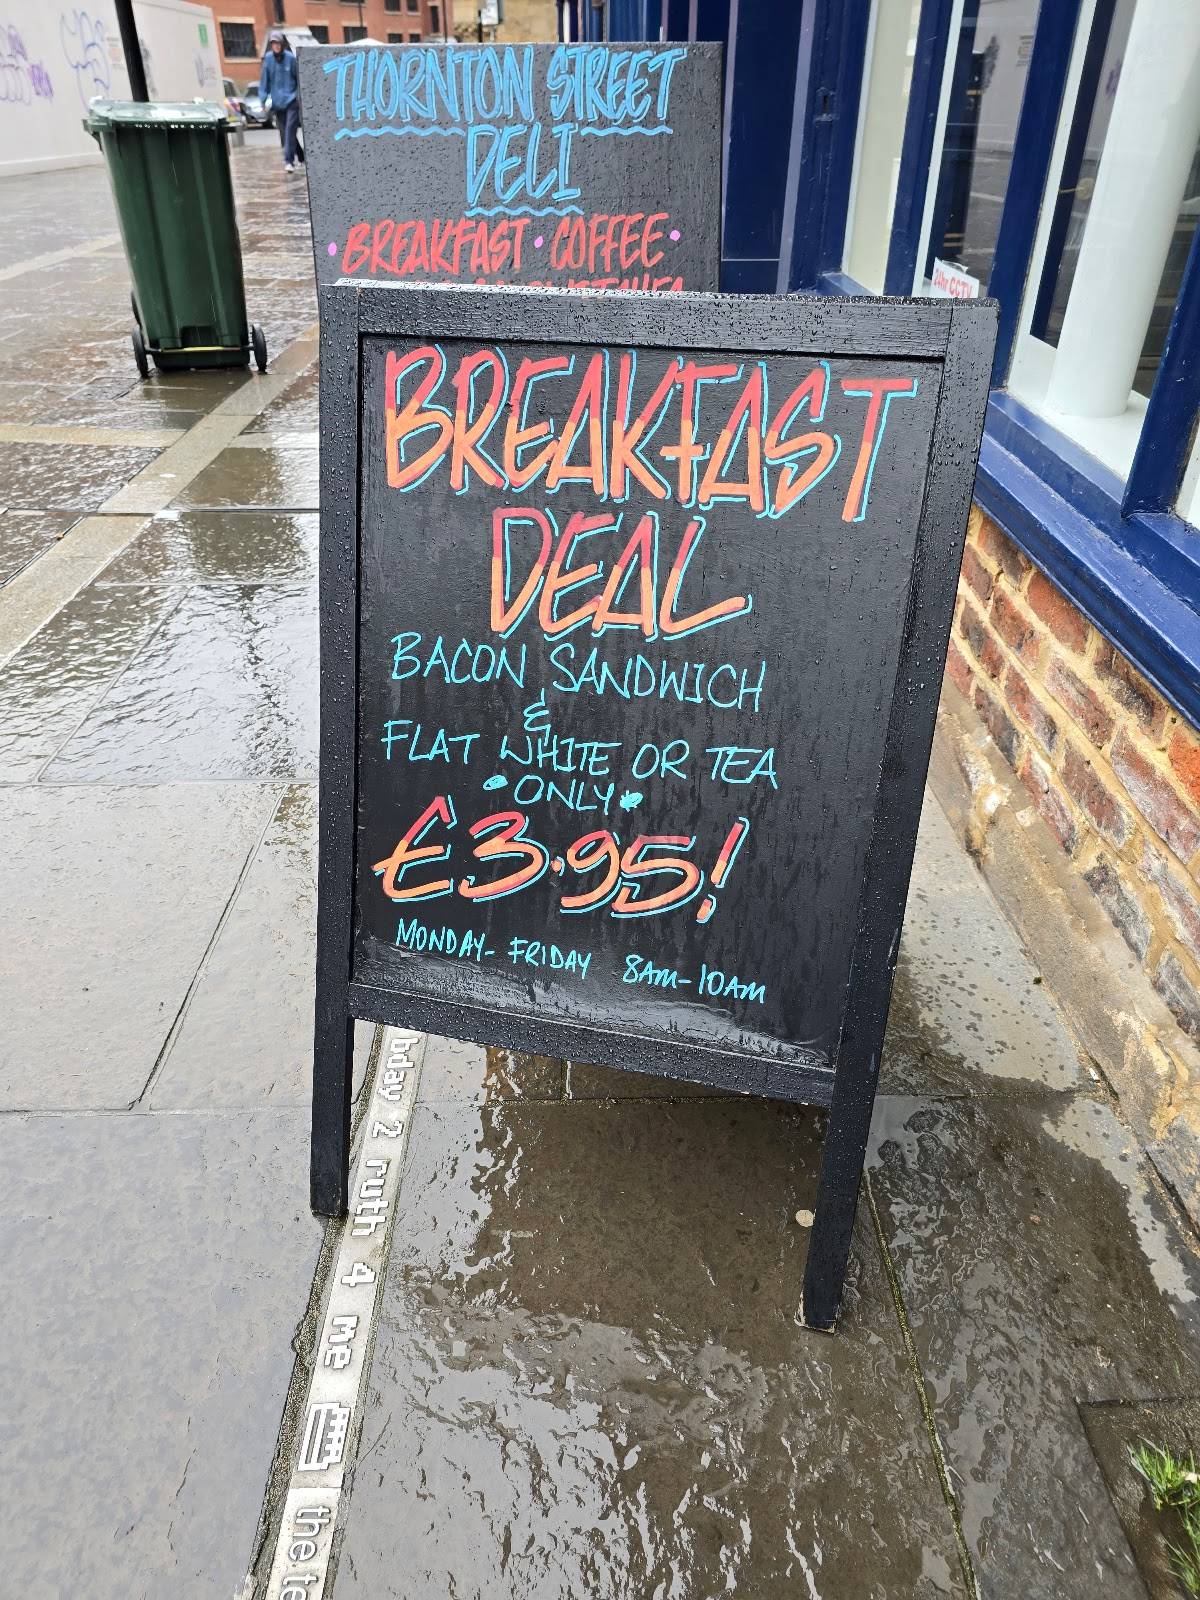 THORNTON STREET
DELI
• BREAKFAST • COFFEE •
BREAKFAST
DEAL
BACON SANDWICH
&
FLAT WHITE OR TEA
• ONLY •
£3.95!
MONDAY - FRIDAY 8AM - 10AM
24hr CCTV
bday 2 ruth 4 me
the